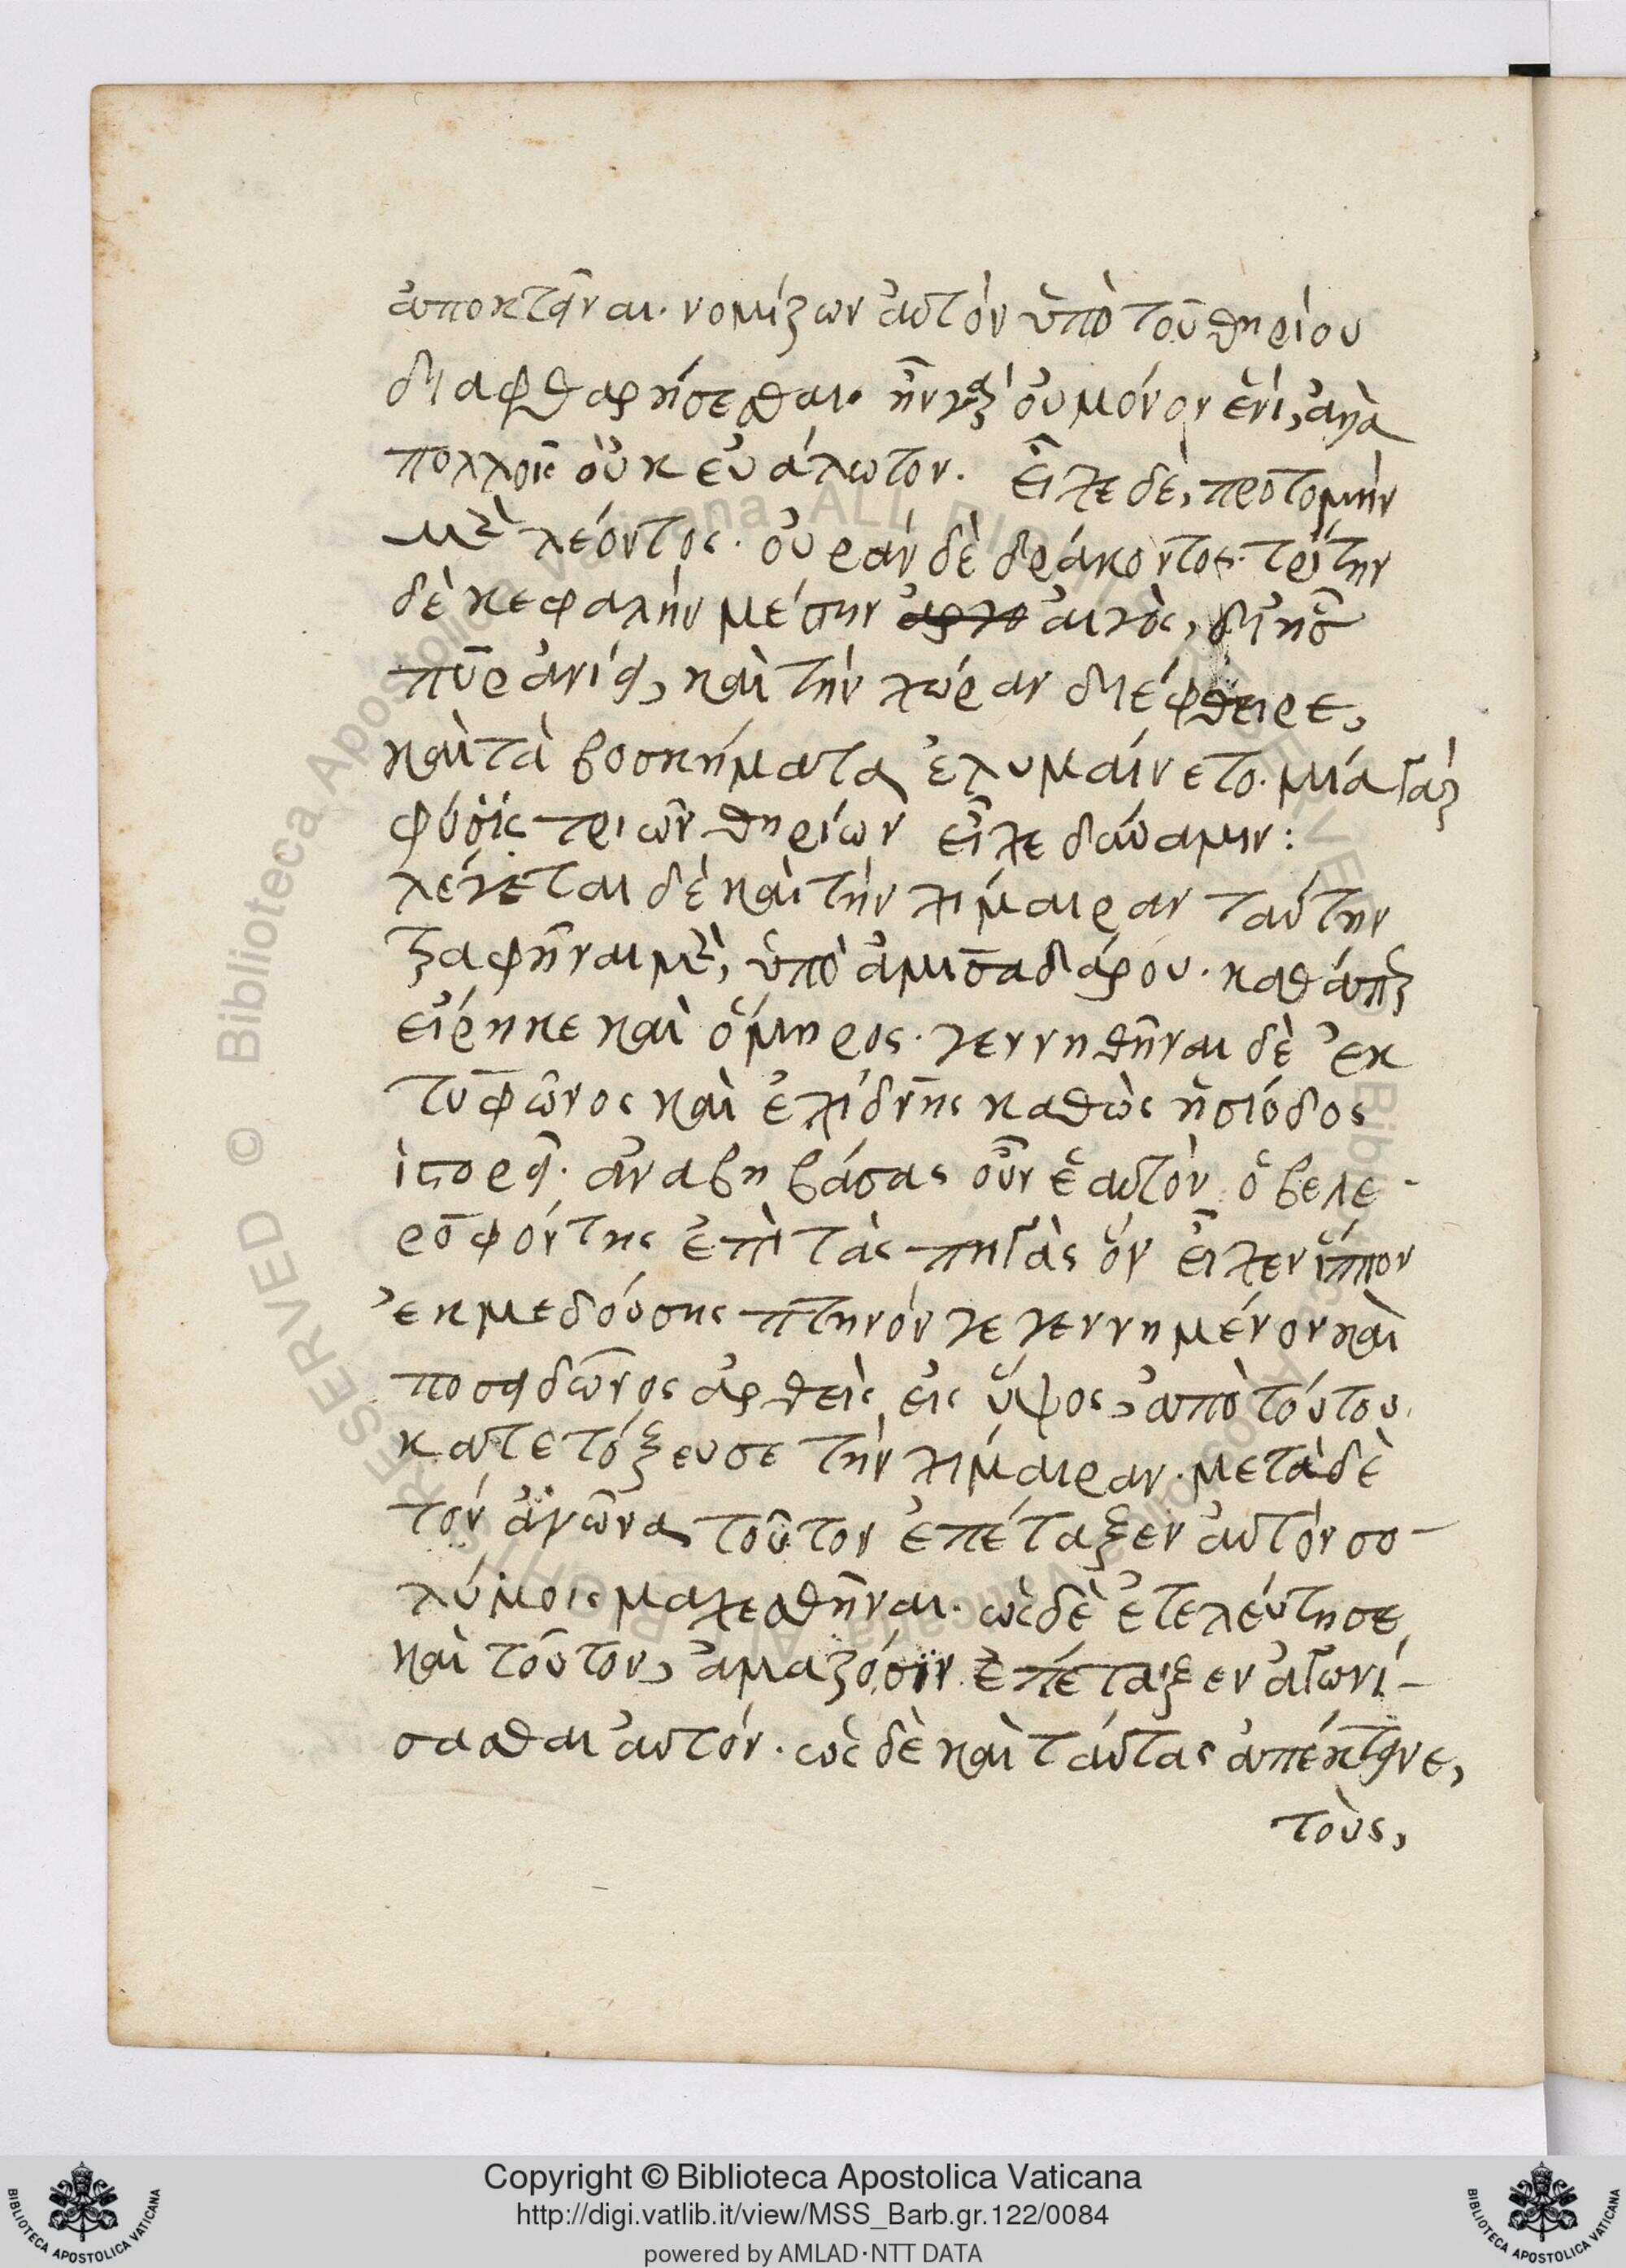 ἀποκτεῖναι. νομίζων αὐτὸν ὑπὸ τοῦ θηρίου
διαφθαρήσεσθαι. ἦν γὰρ οὐ μόνον ἑνὶ, ἀλλὰ
πολλοῖς οὐκ εὐάλωτον. εἶχε δὲ, προτομὴν
μὲν λέοντος. οὐρὰν δὲ δράκοντος. τρίτην
δὲ κεφαλὴν μέσην αἰγὸς, δι' ἧς
πῦρ ἀνίει, καὶ τὴν χώραν διέφθειρε,
καὶ τὰ βοσκήματα ἐλυμαίνετο. μία γὰρ
φύσις τριῶν θηρίων εἶχε δύναμιν:
λέγεται δὲ καὶ τὴν χίμαιραν ταύτην
τραφῆναι μὲν, ὑπὸ ἀμισαδάρου. καθάπερ
εἴρηκε καὶ ὅμηρος. γεννηθῆναι δὲ ἐκ
τυφῶνος καὶ ἐχίδνης καθὼς ἡσίοδος
ἱστορεῖ. ἀναβηβάσας οὖν ἑαυτὸν ὁ βελε-
ροφόντης ἐπὶ τὰς πηγὰς ὃν εἶχεν ἵππον
ἐκ μεδούσης πτηνὸν γεγεννημένον καὶ
ποσειδῶνος ἀρθεὶς εἰς ὕψος, ἀπὸ τούτου
κατετόξευσε τὴν χίμαιραν. μετὰ δὲ
τὸν ἀγῶνα τοῦτον ἐπέταξεν αὐτὸν σο-
λύμοις μαχεσθῆναι. ὡς δὲ ἐτελεύτησε
καὶ τοῦτον, ἀμαζόσιν ἐπέταξεν ἀγωνί-
σασθαι αὐτόν. ὡς δὲ καὶ ταύτας ἀπέκτεινε,
τοὺς,
Copyright © Biblioteca Apostolica Vaticana
http://digi.vatlib.it/view/MSS_Barb.gr.122/0084
powered by AMLAD·NTT DATA